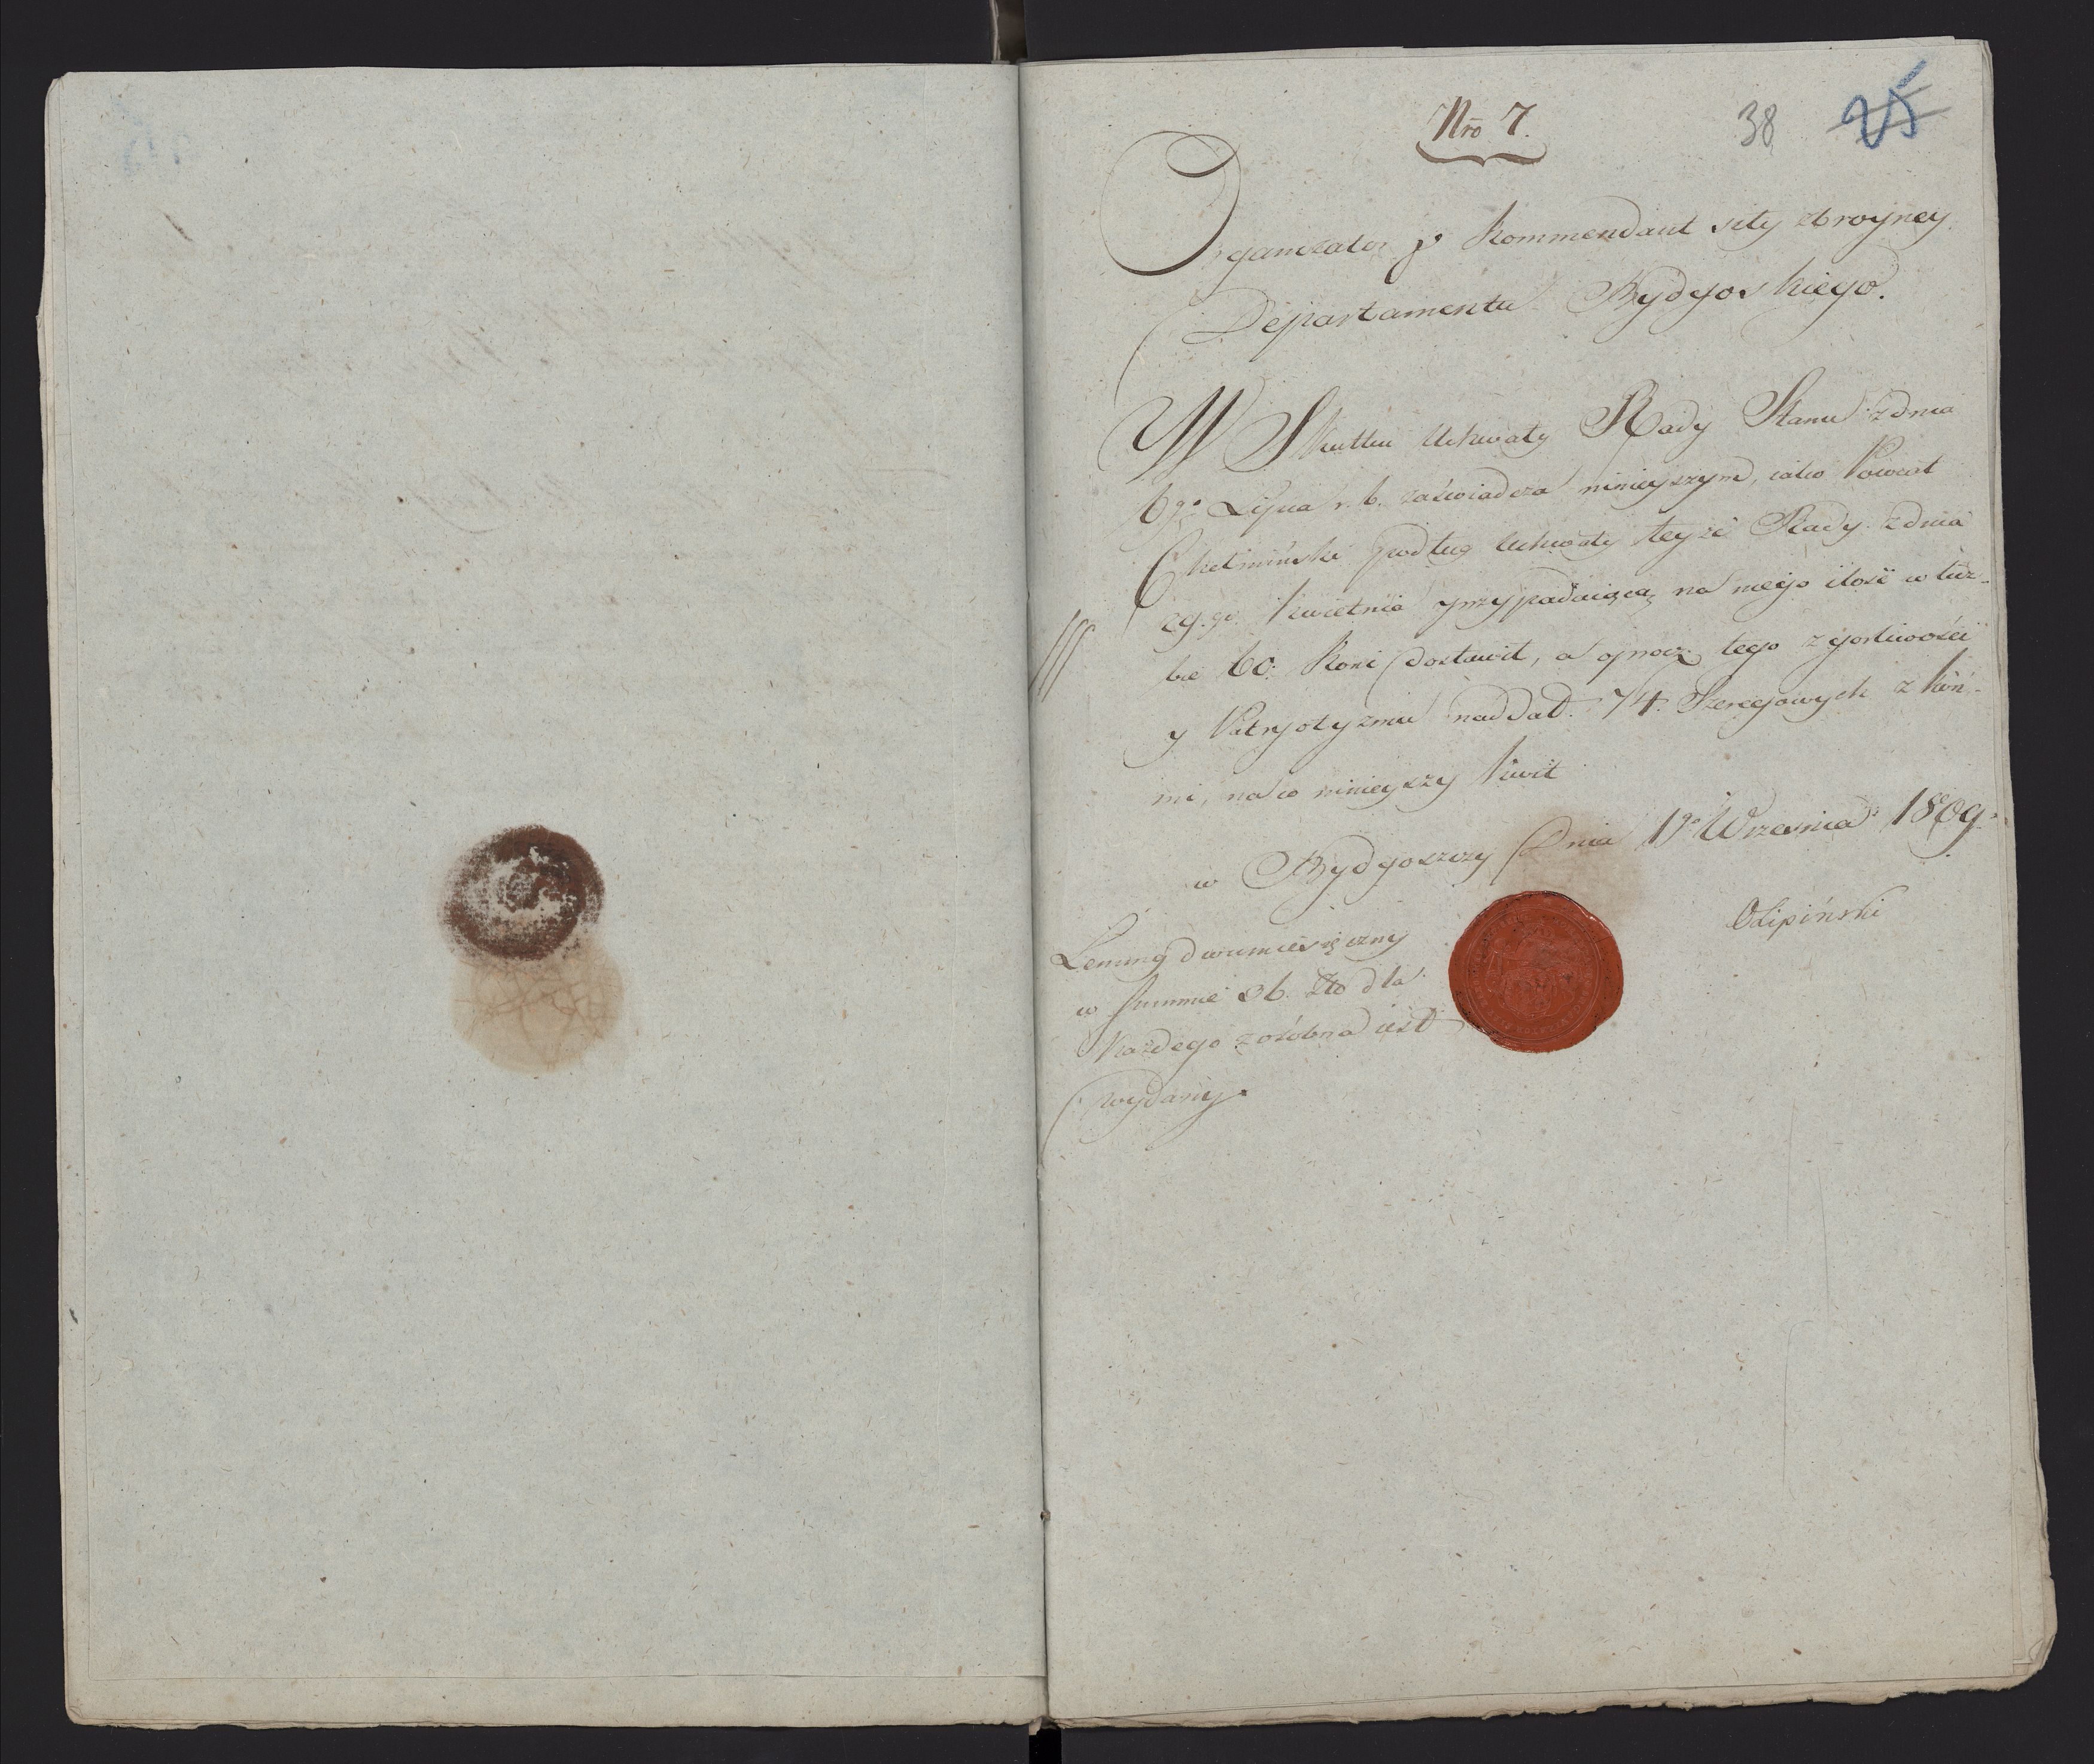 Nro 7.
38 25
Organizator y Kommendant siły zbroyney
Departamentu Bydgoskiego.
W Skutku Uchwały Rady Stanu z dnia
6go Lipca r. b. zaświadcza ninieyszym, iako Powiat
Chełmiński podług Uchwały teyże Rady z dnia
29.go Kwietnia przypadaiącą na niego ilość w licz-
bie 60. Koni dostawił, a oprócz tego z gorliwości
y Patryotyzmu naddał 74. Szeregowych z koń-
mi, na co ninieyszy kwit
w Bydgoszczy Dnia 1go Września 1809.
OLipiński
Lenung dwumiesięczny
w Summie 36. Zło dla
każdego z osobna iest
wydany.